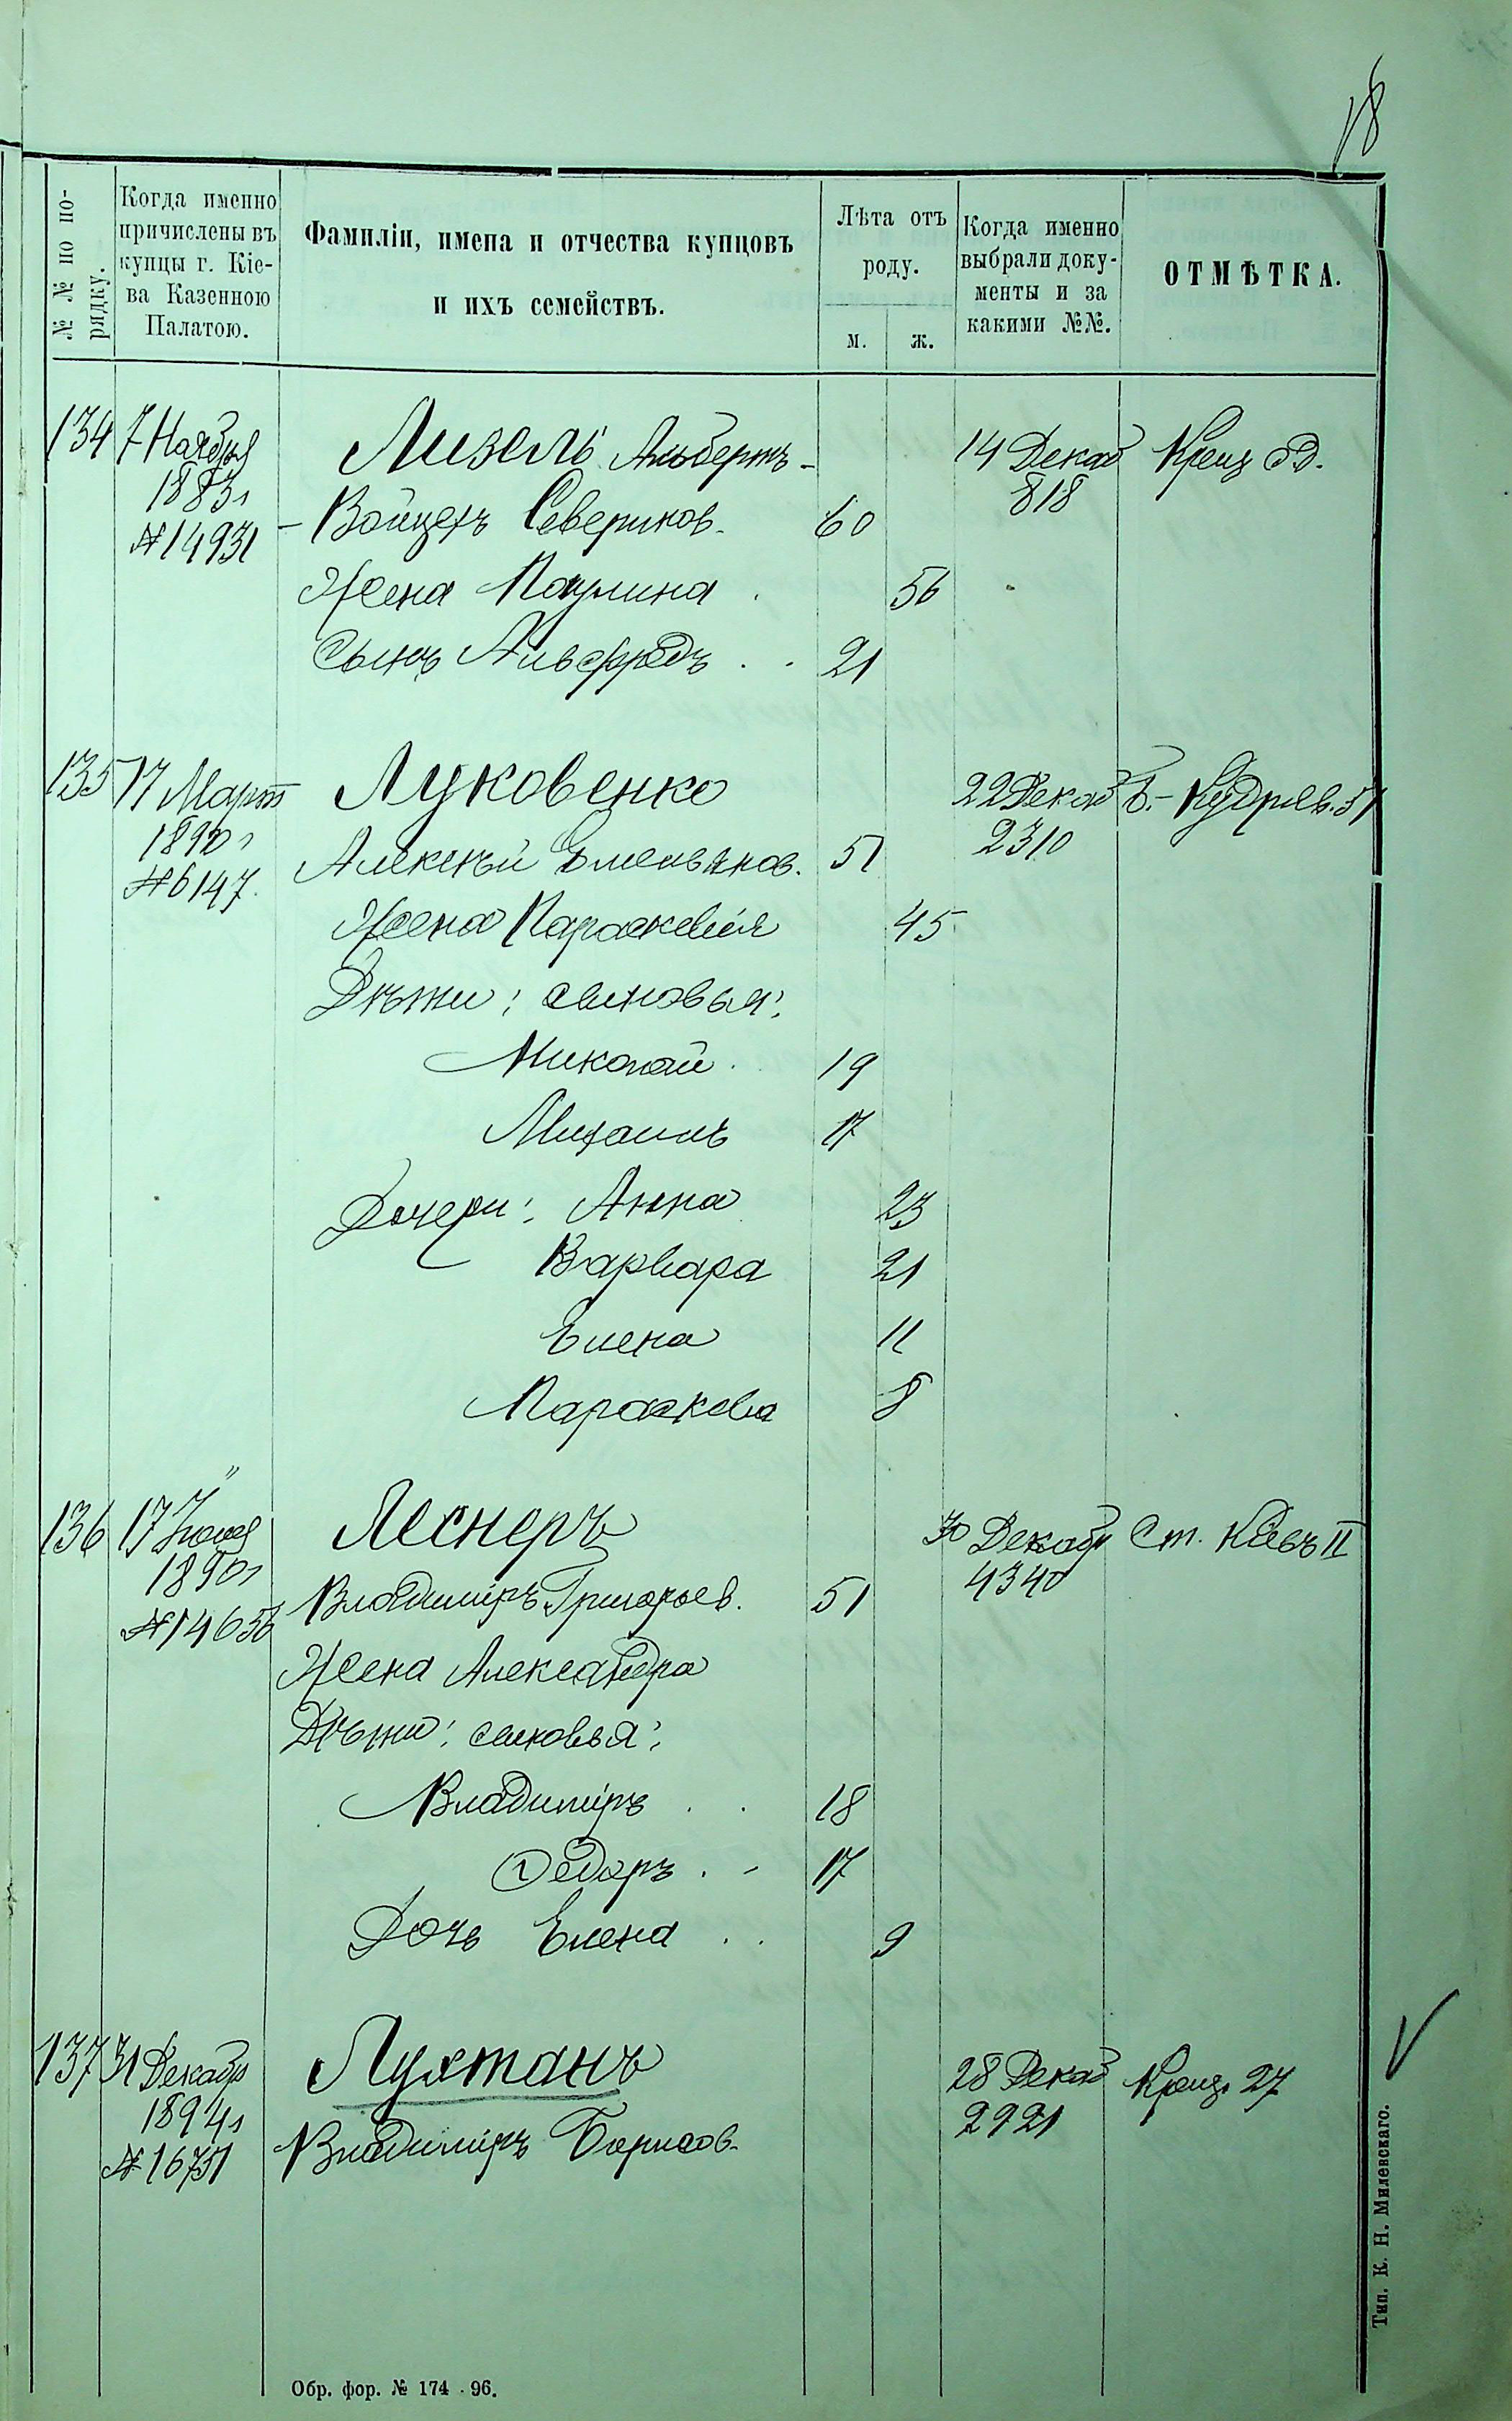 18
№ № по по-
рядку.
Когда именно
причислены въ
купцы г. Кіе-
ва Казенною
Палатою.
Фамиліи, имена и отчества купцовъ
и ихъ семействъ.
Лѣта отъ
роду.
м. ж.
Когда именно
выбрали доку-
менты и за
какими №№.
ОТМѢТКА.
134 7 Ноября Лизель Альбертъ- 14 Декаб Крещ
1883 г 818
№14931 - Войцехъ Северинов. 60
Жена Паулина 56
Сынъ Альфредъ 21
135 17 Март Луковенко 22 Декаб Б.-Кудряв. 51
1890 г 2310
№6147. Алексѣй Емельянов. 51
Жена Параскевія 45
Дѣти: сыновья:
Николай 19
Михаилъ 17
Дочери: Анна 23
Варвара 21
Елена 11
Параскева 8
136 17 Іюля Леснеръ 30 Декабр Ст. Кіевъ II
1890 г 4340
№14656 Владиміръ Григорьев. 51
Жена Александра
Дѣти: сыновья:
Владиміръ 18
Ѳедоръ 17
Дочь Елена 9
137 31 Декабр Лухтанъ 28 Декаб Крещ. 27
1894 г 2921
№16751 Владиміръ Борисов.
Обр. фор. № 174 - 96.
Тип. К. Н. Милевскаго.